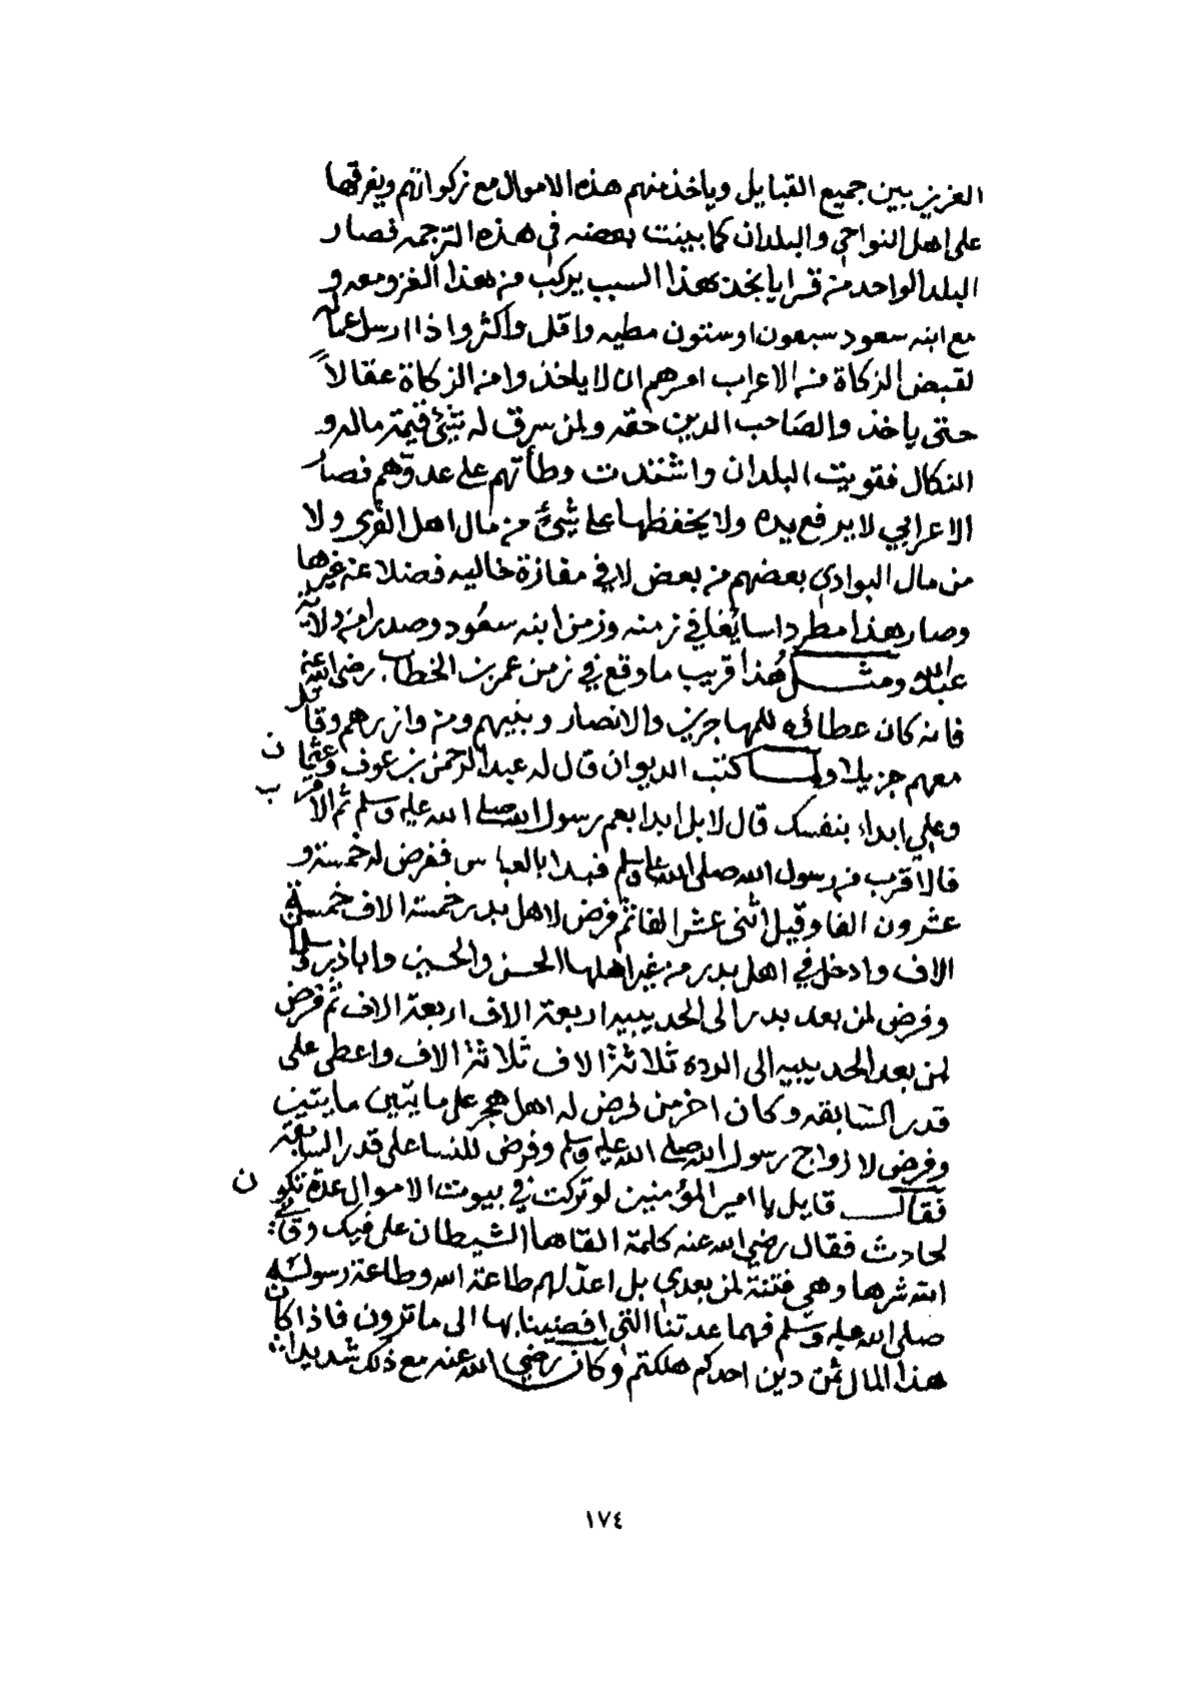 العزيز بين جميع القبايل وياخذ منهم هذه الاموال مع زكواتهم ويفرقها
على اهل النواحي والبلدان كما بينت بعضه في هذه الترجمه فصار
البلد الواحد من قرايا نجد بهذا السبب يركب منه هذا الغزو معه و
مع ابنه سعود سبعون او ستون مطيه واقل واكثر واذا ارسل عماله
لقبض الزكاة من الاعراب امرهم ان لا ياخذوا من الزكاة عقالاً
حتى ياخذوا لصاحب الدين حقه ولمن سرق له شيئ قيمة ماله و
النكال فقويت البلدان واشتدت وطأتهم على عدوهم فصار
الاعرابي لا يرفع يده ولا يخفظها على شيئ من مال اهل القرى ولا
من مال البوادي بعضهم من بعض لا في مفازة خاليه فضلا عن غيرها
وصار هذا مطردا سايغا في زمنه وزمن ابنه سعود وصدرا من ولاية
عبدالله ومثل هذا قريب ما وقع في زمن عمر بن الخطاب رضي الله عنه
فانه كان عطاؤه للمهاجرين والانصار وبنيهم ومن وازرهم وقاتل
معهم جزيلا ولما كتب الديوان قال له عبدالرحمن بن عوف وعثمان
وعلي ابداء بنفسك قال لا بل ابدا بعم رسول الله صلى الله عليه وسلم ثم الاقرب
فالاقرب من رسول الله صلى الله عليه وسلم فبدا بالعباس ففرض له خمسة و
عشرون الفا وقيل اثنى عشر الفا ثم فرض لاهل بدر خمسة الاف خمسة
الاف وادخل في اهل بدر من غير اهلها الحسن والحسين واباذر وسلمان
وفرض لمن بعد بدر الى الحديبيه اربعة الاف اربعة الاف ثم فرض
لمن بعد الحديبيه الى الرده ثلاثة الاف ثلاثة الاف واعطى على
قدر السابقه وكان اخر من فرض له اهل هجر على مايتين مايتين
وفرض لازواج رسول الله صلى الله عليه وسلم وفرض للنسا على قدر السابقة
فقال قايل يا امير المؤمنين لو تركت في بيوت الاموال عدة تكون
لحادث فقال رضي الله عنه كلمة القاها الشيطان على فيك وقاني
الله شرها وهي فتنة لمن بعدي بل اعد لهم طاعة الله وطاعة رسوله
صلى الله عليه وسلم فهما عدتنا التي افضينا بها الى ما ترون فاذا كان
هذا المال ثمن دين احدكم هلكتم وكان رضي الله عنه مع ذلك شديدا
١٧٤